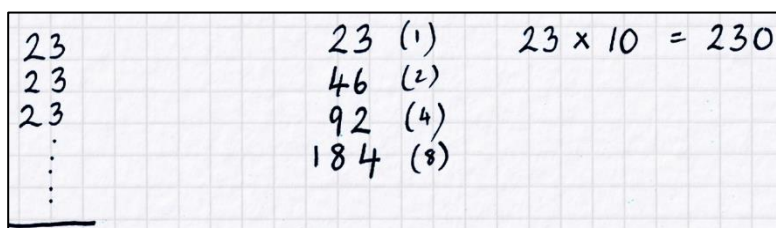 23
23
23
23 (1)
46 (2)
92 (4)
184 (8)
23 × 10 = 230